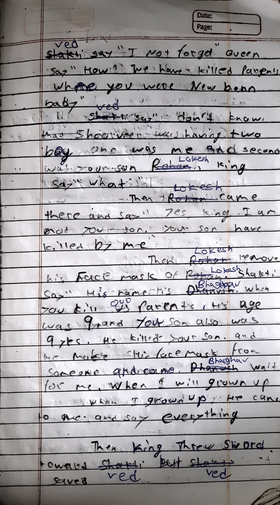 Date:
Page:
ved
shakti say " I Not forget" Queen
say "How? We have killed Parents
where you were New born
baby"
ved
shakti say " don't know
that was having two
boy one was me and second
Lokesh
was your son Rohan, king
say "what"
Lokesh
Then Rohan came
there and say " Yes king, I am
not your son, your son have
killed by me
Lokesh
Then Rohan remove
Lokesh
his Face mask of Shakti
Bhaghav
say " His name is when
our
You kill parents, His age
was 9 and Your son also was
9 yrs, He killed your son, and
He make His face mask from
Bhaghav
Someone and came wait
for me, When I will grown up
when I grown up, He came
to me and say everything
Then King Threw Sword
toward Shakti But Shakti
saved ved ved